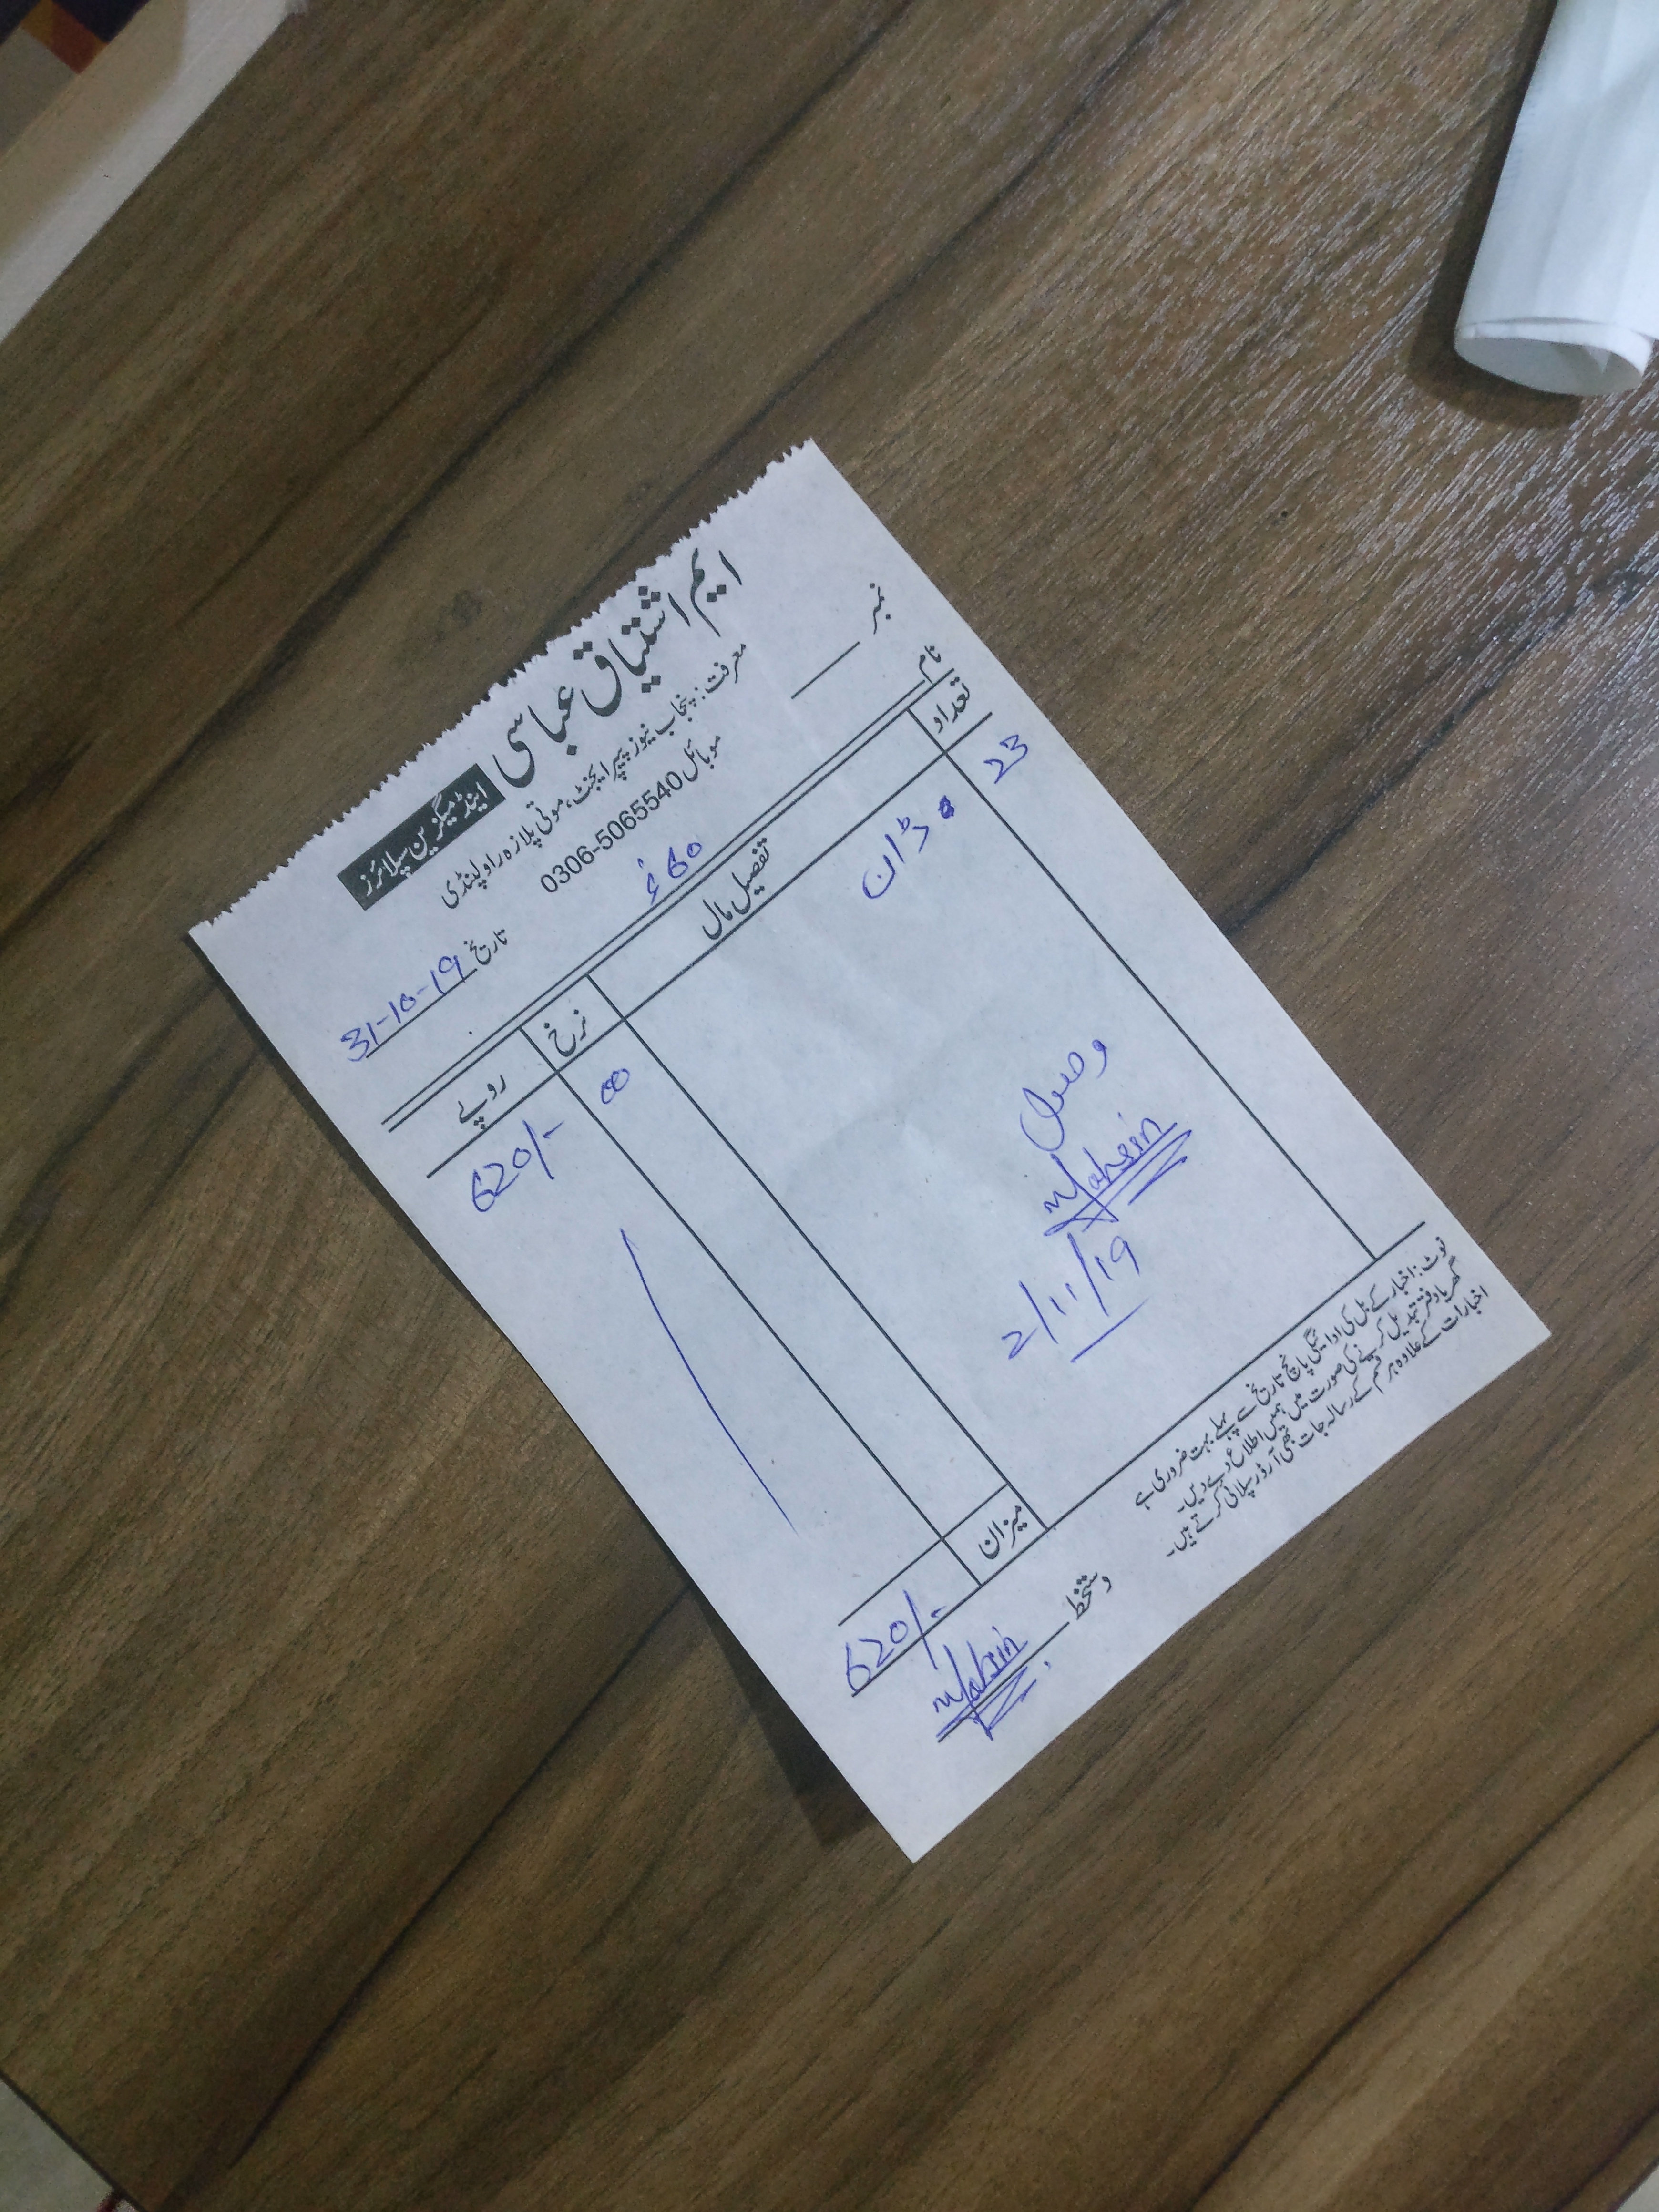 ایم اشتیاق عباسی اینڈ میگزین سپلائرز
معرفت: پنجاب نیوز پیپر ایجنٹ، موتی پلازہ راولپنڈی
موبائل 0306-5065540
نمبر تاریخ 31-10-19
نام
تعداد تفصیل مال نرخ روپے
23 ڈان 620/-
وصول
Mohsin
2/11/19
میزان 620/-
نوٹ: اخبار کے بل کی ادائیگی پانچ تاریخ سے پہلے بہت ضروری ہے
گھر یا دفتر تبدیل کرنے کی صورت میں ہمیں اطلاع دے دیں۔
اخبارات کے علاوہ ہر قسم کے رسالہ جات بھی آرڈر پر سپلائی کرتے ہیں۔
دستخط Mohsin